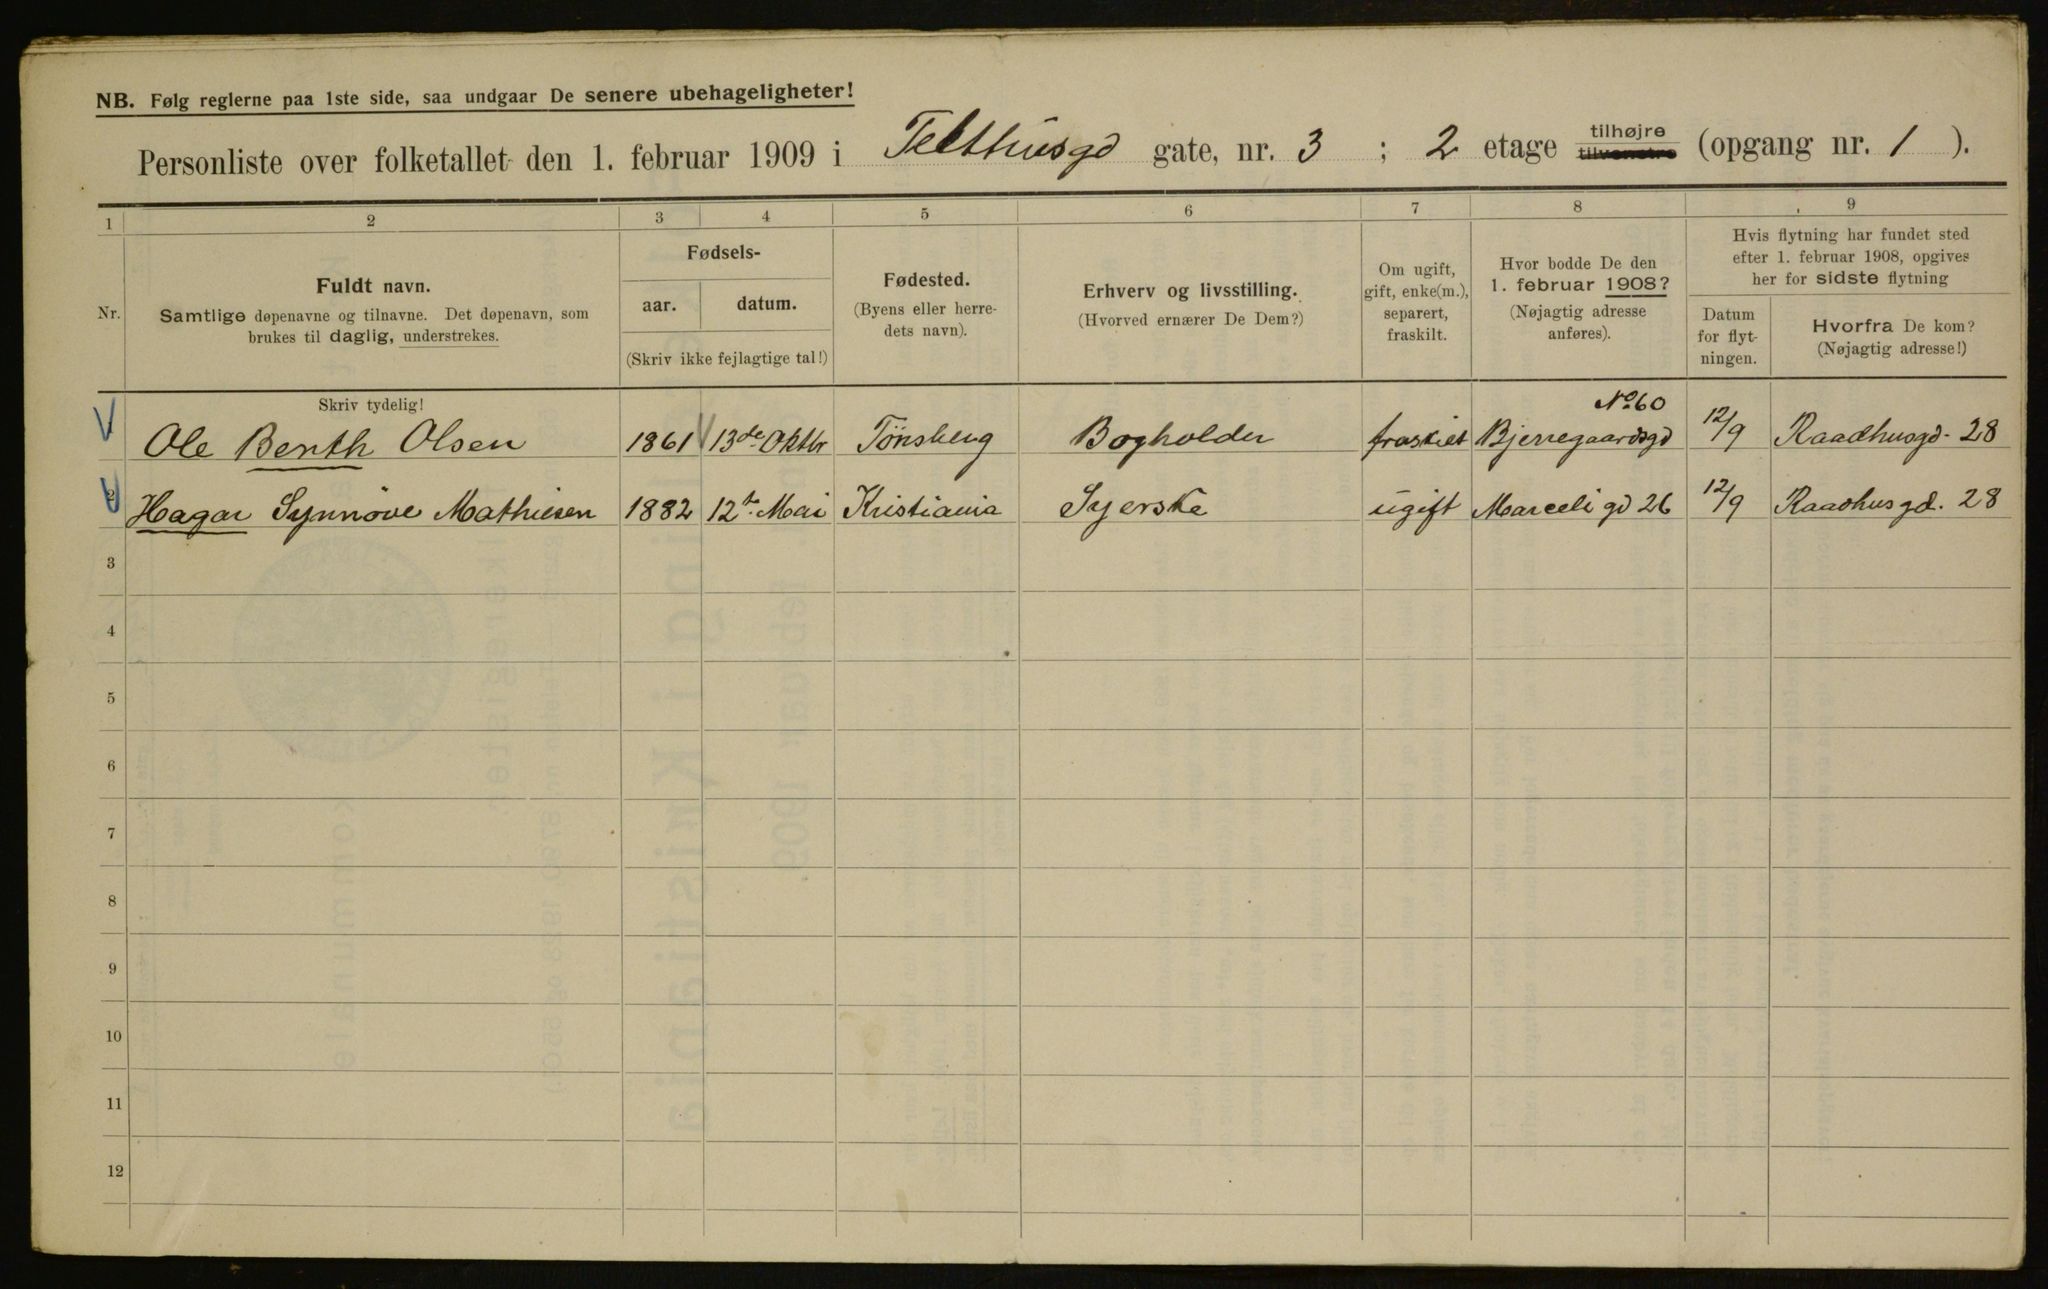 NB. Følg reglerne paa 1ste side, saa undgaar De senere ubehageligheter!
Personliste over folketallet den 1. februar 1909 i Telthusgd gate, nr. 3 ; 2 etage tilhøjre tilvenstre (opgang nr. 1 ).
1 2 3 4 5 6 7 8 9
Nr.
Fuldt navn.
Samtlige døpenavne og tilnavne. Det døpenavn, som
brukes til daglig, understrekes.
Fødsels-
aar. datum.
(Skriv ikke fejlagtige tal!)
Fødested.
(Byens eller herre-
dets navn).
Erhverv og livsstilling.
(Hvorved ernærer De Dem?)
Om ugift,
gift, enke(m.),
separert,
fraskilt.
Hvor bodde De den
1. februar 1908?
(Nøjagtig adresse
anføres).
Hvis flytning har fundet sted
efter 1. februar 1908, opgives
her for sidste flytning
Datum
for flyt-
ningen.
Hvorfra De kom?
(Nøjagtig adresse!)
Skriv tydelig!
No 60
Ole Benth Olsen 1861 13de Oktbr Tönsberg Bogholder fraskilt Bjerregaardsgd 12/9 Raadhusgd. 28
2 Hagar Synnöve Mathiesen 1882 12te Mai Kristiania Syerske ugift Marceli gd 26 12/9 Raadhusgd. 28
3
4
5
6
7
8
9
10
11
12